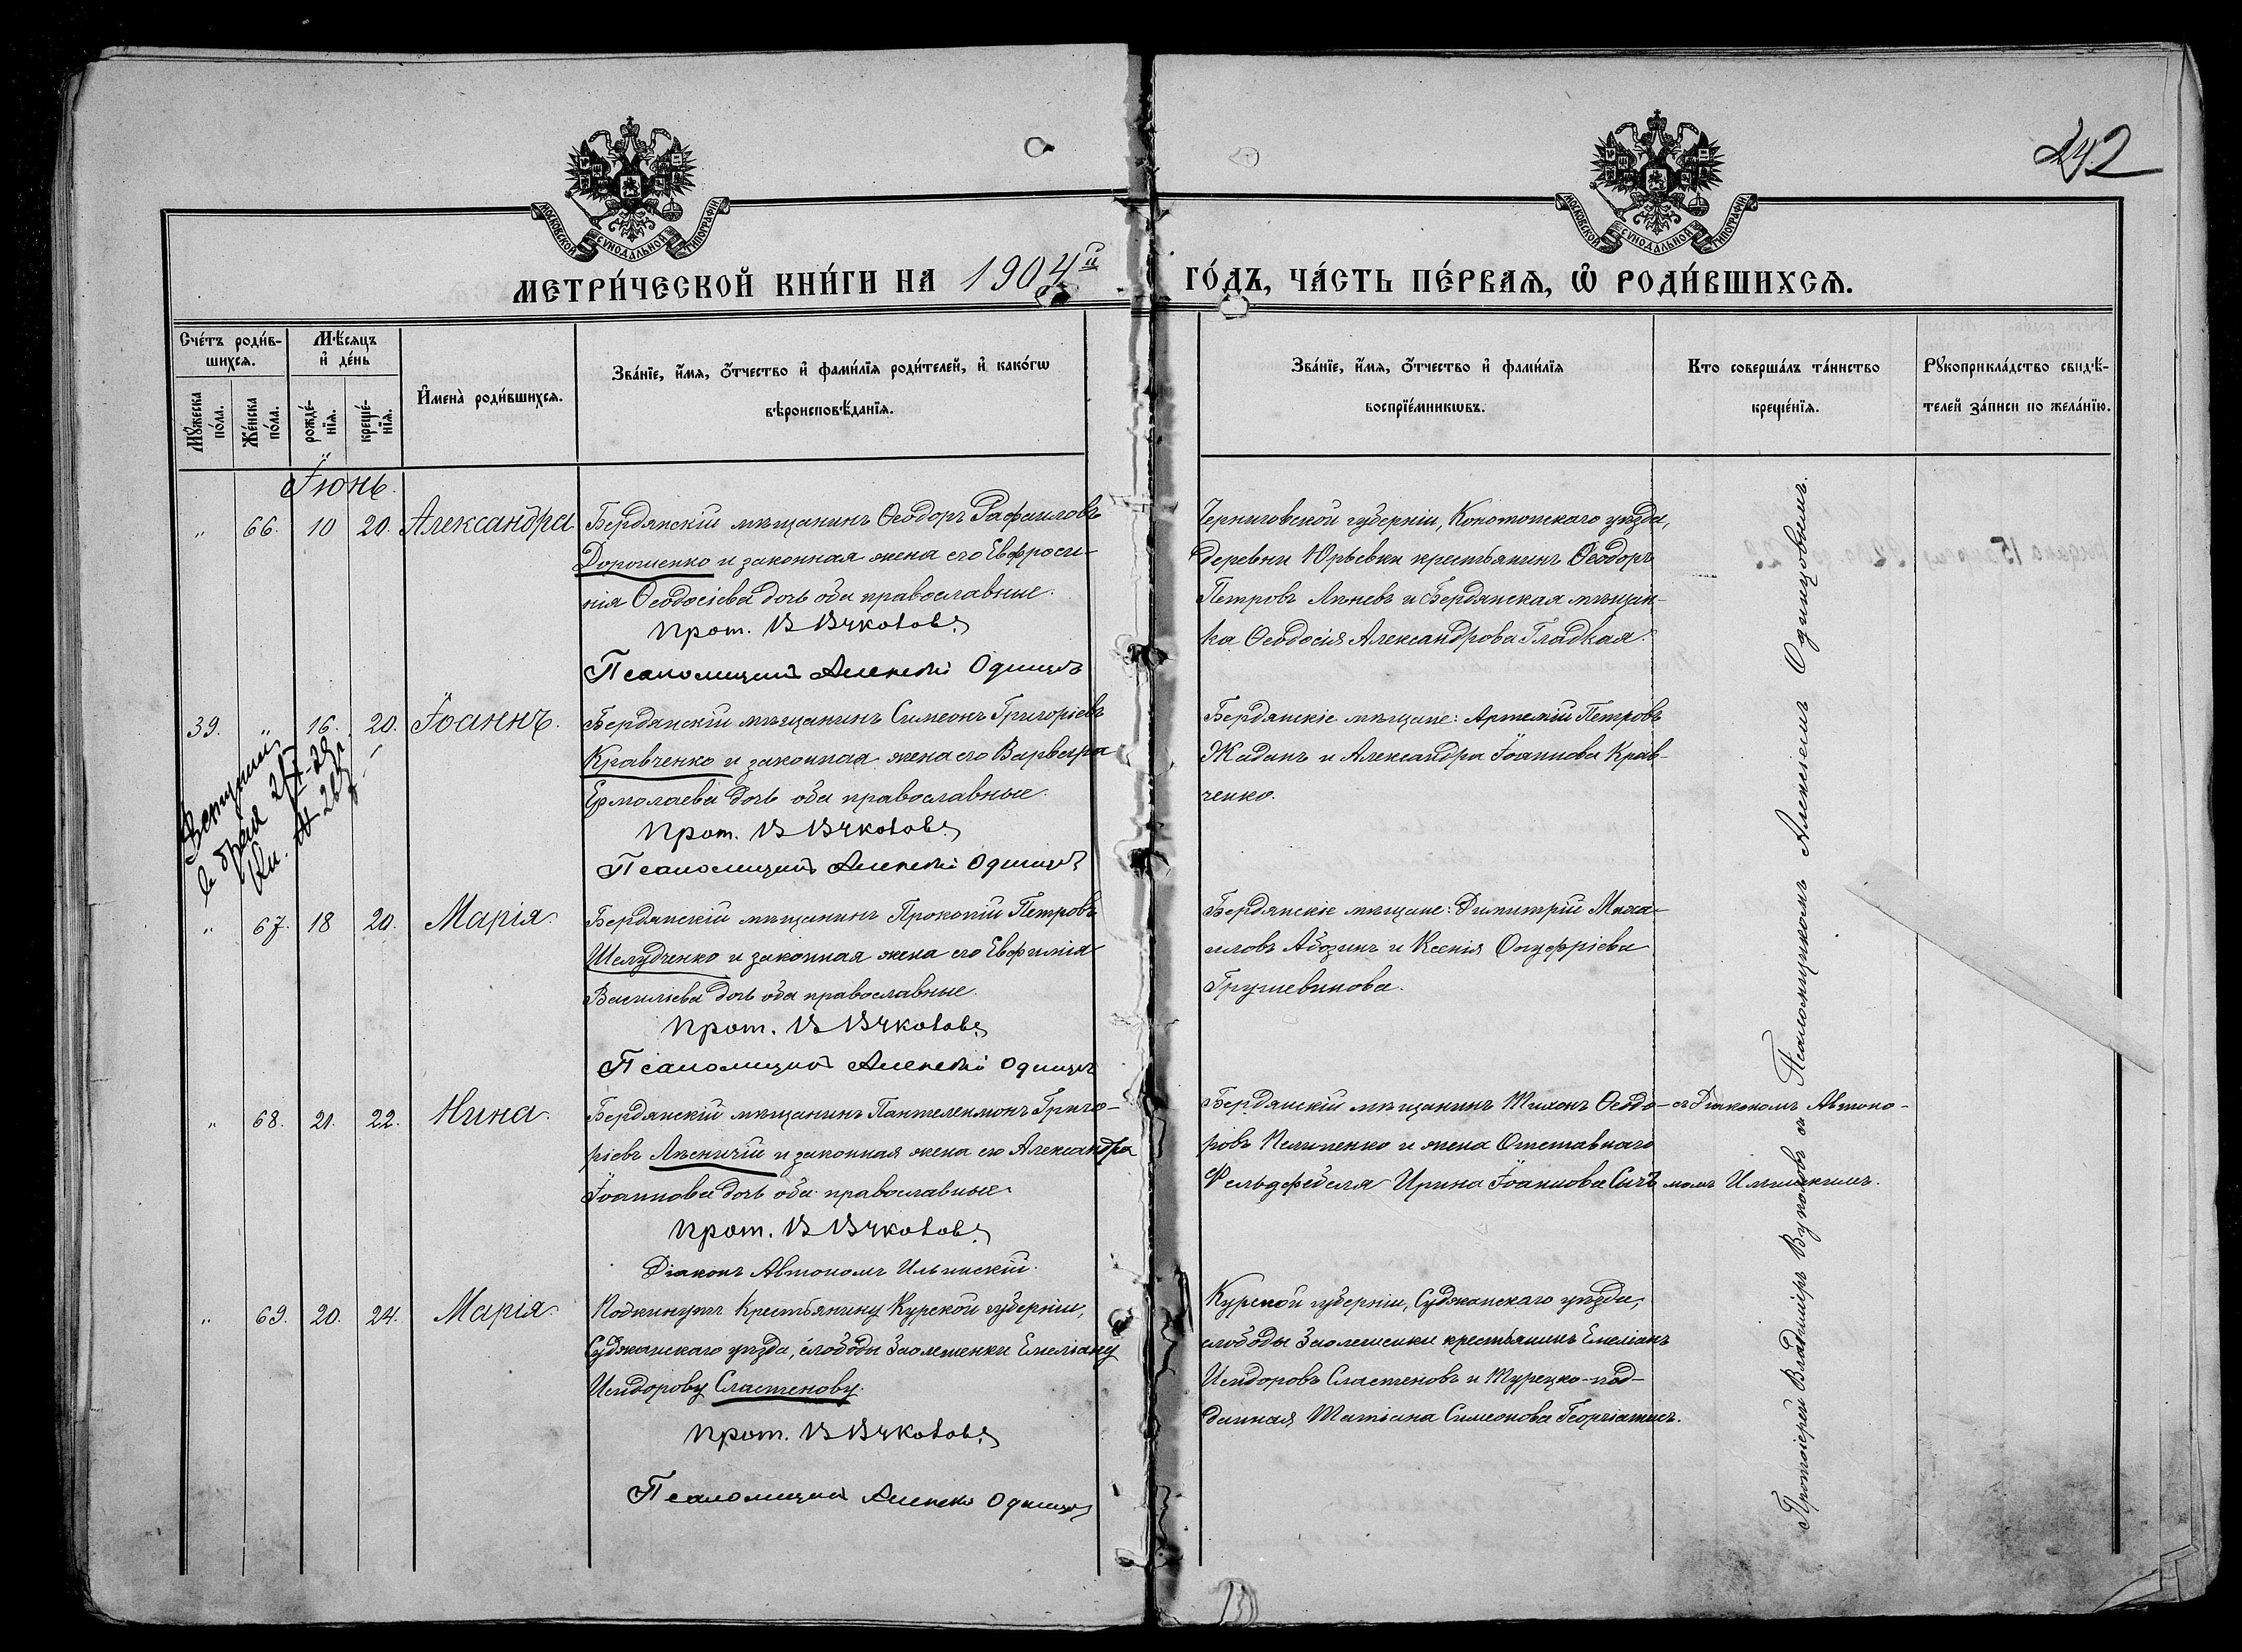 242
МОСКОВСКОЙ СѴНОДАЛЬНОЙ ТИПОГРАФІИ
МОСКОВСКОЙ СѴНОДАЛЬНОЙ ТИПОГРАФІИ
МЕТРИ́ЧЕСКОЙ КНИ́ГИ НА 1904й ГО́ДЪ, ЧА́СТЬ ПЕ́РВАѦ, Ѡ РОДИ́ВШИХСѦ.
Сче́тъ роди́в-
шихсѧ.
Мѣ́сѧцъ
и҆ де́нь
Мꙋ́жеска
по́ла.
Же́нска
по́ла.
рожде́-
нїѧ.
креще́-
нїѧ.
И҆мена̀ роди́вшихсѧ.
Зва́нїе, и҆́мѧ, ѻ҆́тчество и҆ фами́лїѧ роди́телей, и҆ како́гѡ
вѣроисповѣ́данїѧ.
Зва́нїе, и҆́мѧ, ѻ҆́тчество и҆ фами́лїѧ
воспрїе́мникѡвъ.
Кто соверша́лъ та́инство
креще́нїѧ.
Рꙋкоприкла́дство свидѣ́-
телей за́писи по жела́нїю.
Іюнь.
" 66. 10 20. Александра
Бердянскій мѣщанинъ Ѳеодоръ Рафаиловъ
Дорошенко и законная жена его Евфроси-
нія Ѳеодосіева дочь оба православные.
Прот. В Вучковъ
Псаломщикъ Алексѣй Одинцовъ
Черниговской губерніи, Конотопскаго уѣзда,
деревни Юрьевки крестьянинъ Ѳеодоръ
Петровъ Линевъ и Бердянская мѣщан-
ка Ѳеодосія Александрова Гладкая.
39. " 16. 20. Іоаннъ.
Вступилъ
в бракъ
Бердянскій мѣщанинъ Симеонъ Григоріевъ
Кравченко и законная жена его Варвара
Ермолаева дочь оба православные.
Прот. В Вучковъ
Псаломщикъ Алексѣй Одинцовъ
Бердянскіе мѣщане: Артемій Петровъ
Жаданъ и Александра Іоаннова Крав-
ченко.
" 67. 18 20. Марія.
Бердянскій мѣщанинъ Прокопій Петровъ
Шелудченко и законная жена его Евфимія
Васильева дочь оба православные.
Прот. В Вучковъ
Псаломщикъ Алексѣй Одинцовъ
Бердянскіе мѣщане: Димитрій Миха-
иловъ Абозинъ и Ксенія Онуфріева
Грушевикова.
" 68. 21. 22. Нина.
Бердянскій мѣщанинъ Пантелеимонъ Григо-
ріевъ Лѣсничій и законная жена его Александра
Іоаннова дочь оба православные.
Прот. В Вучковъ
Діаконъ Автономъ Ильинскій.
Бердянскій мѣщанинъ Тихонъ Ѳеодо-
ровъ Пилипенко и жена Отставнаго
Фельдфебеля Ирина Іоаннова
съ Діакономъ Автоно-
момъ Ильинскимъ.
" 69. 20. 24. Марія.
Подкинута крестьянину Курской губерніи,
Суджанскаго уѣзда, слободы Заолешенки Емеліану
Исидорову Сластенову.
Прот. В Вучковъ
Псаломщикъ Алексѣй Одинцовъ
Курской губерніи, Суджанскаго уѣзда,
слободы Заолешенки крестьянинъ Емеліанъ
Исидоровъ Сластеновъ и Турецко-под-
данная Татіана Симеонова
Протоіерей Владиміръ Вучковъ съ Псаломщикомъ Алексѣемъ Одинцовымъ.